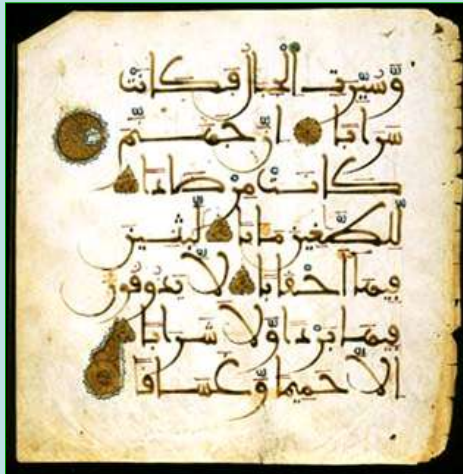 وَّسُيِّرَتِ الْجِبَالُ فَكَانَتْ
سَرَابًا إِنَّ جَهَنَّمَ
كَانَتْ مِرْصَادًا
لِّلطَّٰغِينَ مَـَٔابًا لَّٰبِثِينَ
فِيهَا أَحْقَابًا لَّا يَذُوقُونَ
فِيهَا بَرْدًا وَّلَا شَرَابًا
إِلَّا حَمِيمًا وَّغَسَاقًا